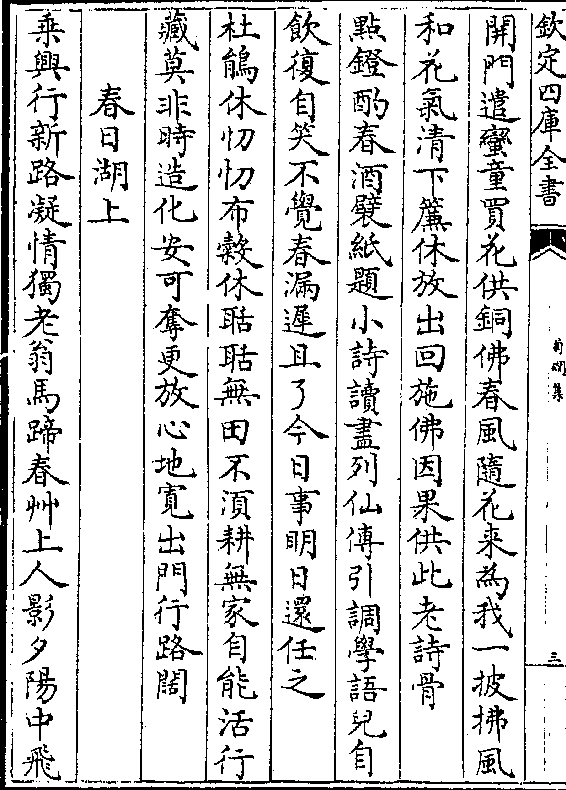 欽定四庫全書
菊磵集
三
開門遣蠻童買花供銅佛春風隨花来為我一披拂風
和花氣清下簾休放出回施佛因果供此老詩骨
點鐙酌春酒襞紙題小詩讀盡列仙傳引調學語兒自
飲復自笑不覺春漏遲且了今日事明日還任之
杜鵑休忉忉布穀休聒聒無田不湏耕無家自能活行
藏莫非時造化安可奪更放心地寛出門行路闊
春日湖上
乗興行新路凝情獨老翁馬蹄春艸上人影夕陽中飛